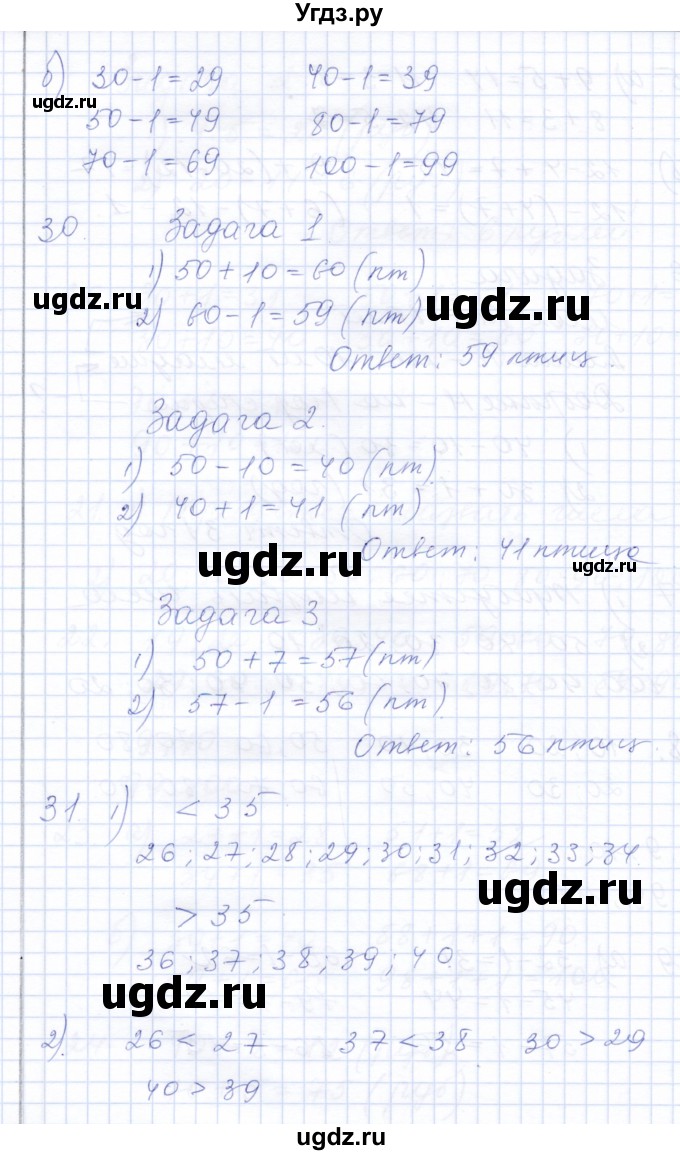 Угдз.ру
б) 30-1=29 40-1=39
ugdz.ru
50-1=49 80-1=79
70-1=69 100-1=99
30. Задача 1
1) 50+10=60 (пт)
ugdz.ru
2) 60-1=59 (пт)
ugdz.ru
Ответ: 59 птиц.
Задача 2.
1) 50-10=40 (пт).
2) 40+1=41 (пт)
Ответ: 41 птица
ugdz.ru
ugdz.ru
Задача 3
1) 50+7=57 (пт)
2) 57-1=56 (пт).
Ответ: 56 птиц
31 1) < 35
26; 27; 28; 29; 30; 31; 32; 33; 34.
ugdz.ru
> 35
36; 37; 38; 39; 40.
ugdz.ru
2). 26 < 27 37 < 38. 30 > 29
40 > 39
ugdz.ru